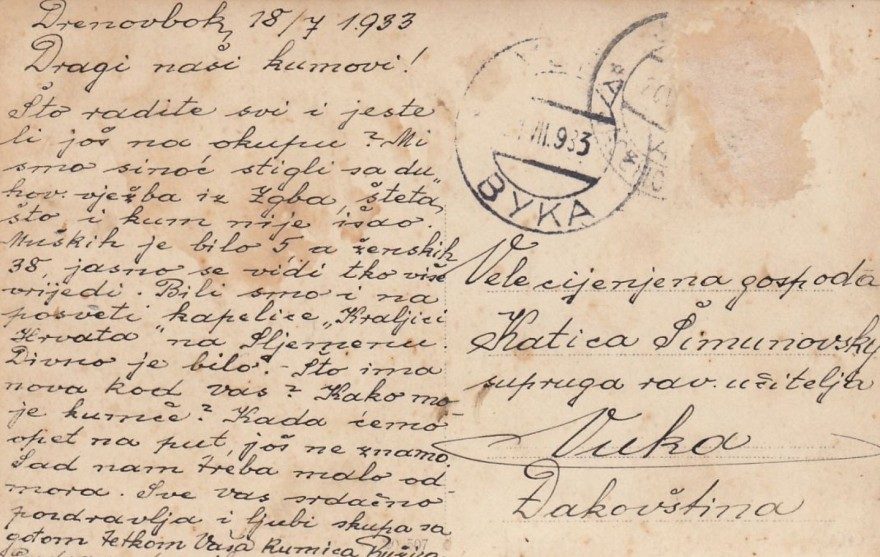 Drenovbok, 18/7 1933
Dragi naši kumovi!
Što radite svi i jeste
li još na okupu? Mi
smo sinoć stigli sa du-
hov. vježba iz Zgba, šteta,
što i kum nije išao.
Muških je bilo 5, a ženskih
38, jasno se vidi tko više
vrijedi. Bili smo i na
posveti kapelice "Kraljici
Hrvata" na Sljemenu.
Divno je bilo. - Što ima
nova kod vas? Kako mo-
je kumče? Kada ćemo
opet na put, još ne znamo.
Sad nam treba malo od-
mora. Sve vas srdačno
pozdravlja i ljubi skupa sa
gosem tetkom Vaša kumica
VII.933
ВУКА
Velecijenjena gospođa
Katica Šimunovsky
supruga rav. učitelja
Vuka
Đakovština